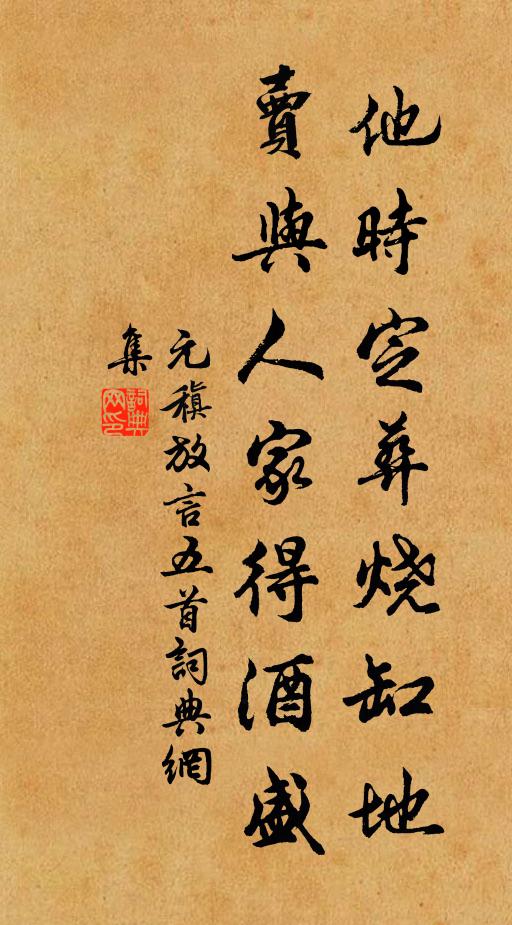 他時定葬燒缸地
賣與人家得酒盛
元稹放言五首詞典網
集
詞典
网印